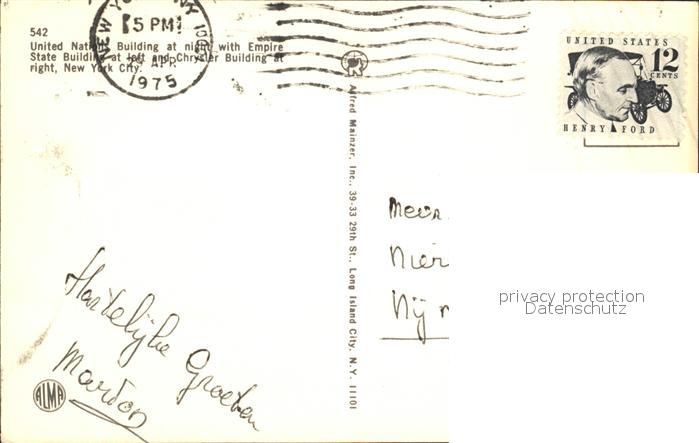 542
United Nations Building at night with Empire
State Building at left and Chrysler Building at
right, New York City.
NEW YORK
5 PM
APR
1975
UNITED STATES
12
CENTS
HENRY FORD
Alfred Mainzer, Inc., 39-33 29th St., Long Island City, N.Y. 11101
Mevr.
Nij
privacy protection
Datenschutz
Hartelijke Groeten
ALMA